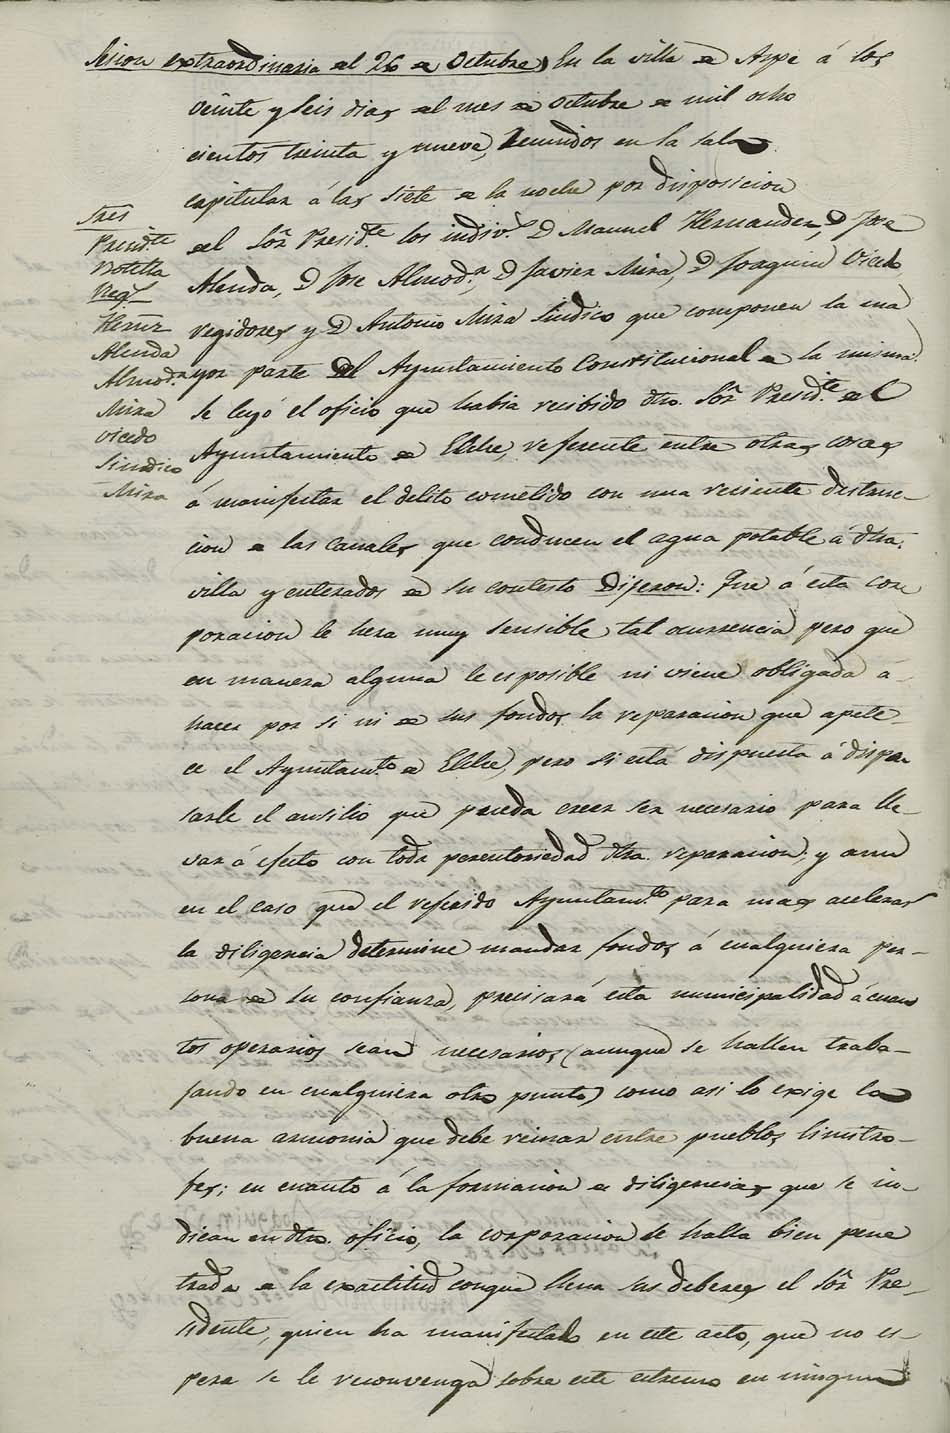 Sesion extraordinaria del 26 de Octubre) En la villa de Aspe á los
veinte y seis dias del mes de octubre de mil ocho
cientos treinta y nueve, Reunidos en la sala
capitular á las siete de la noche por disposicion
del Sor. Presid.te los indiv.s D Manuel Hernandez, D Jose
Alenda, D Jose Almod.r, D Javier Mira, D Joaquin Vicedo,
regidores y D Antonio Mira Sindico que componen la ma
yor parte del Ayuntamiento Constitucional de la misma.
Se leyó el oficio que habia recibido dho. Sor. Presid.te del
Ayuntamiento de Elche, referente entre otras cosas
á manifestar el delito cometido con una reciente destruc-
cion de las canales que conducen el agua potable á dha.
villa y enterados de su contesto Dijeron: Que á esta cor
poracion le hera muy sensible tal ocurrencia pero que
en manera alguna le es posible ni viene obligada a-
hacer por si ni de sus fondos la reparacion que apete-
ce el Ayuntam.to de Elche, pero si está dispuesta á dispen
sarle el ausilio que pueda creer ser necesario para lle-
var á efecto con toda perentoriedad dha. reparacion; y aun
en el caso que el referido Ayuntam.to para mas acelerar
la diligencia determine mandar fondos á cualquiera per-
sona de su confianza, precisará esta municipalidad á cuan
tos operarios sean necesarios (aunque se hallen traba-
jando en cualquiera otro punto) como asi lo exige la
buena armonia que debe reinar entre pueblos limitro-
fes; en cuanto á la formacion de diligencias que se in-
dican en dho. oficio, la corporacion se halla bien pene
trada de la exactitud conque llena sus deberes el Sor. Pre-
sidente, quien ha manifestado en este acto, que no es-
pera se le reconvenga sobre este estremo en ningun
Sres
Presid.te
Botella
Reg.s
Hernz
Alenda
Almod.r
Mira
Vicedo
Sindico
Mira